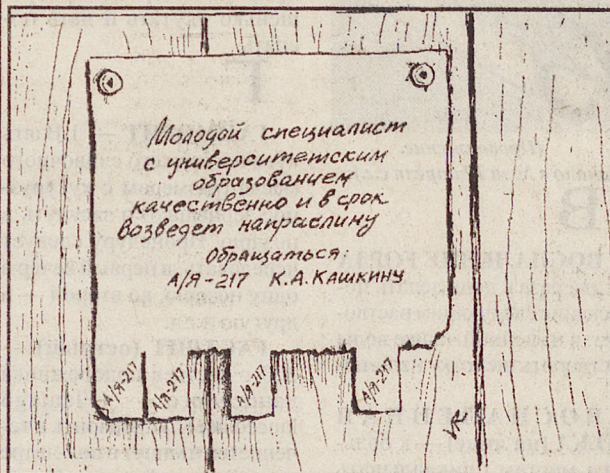 Молодой специалист
с университетским
образованием
качественно и в срок
возведет напраслину
обращаться:
А/Я-217 К.А.КАШКИНУ
А/Я-217
А/Я-217
А/Я-217
А/Я-217